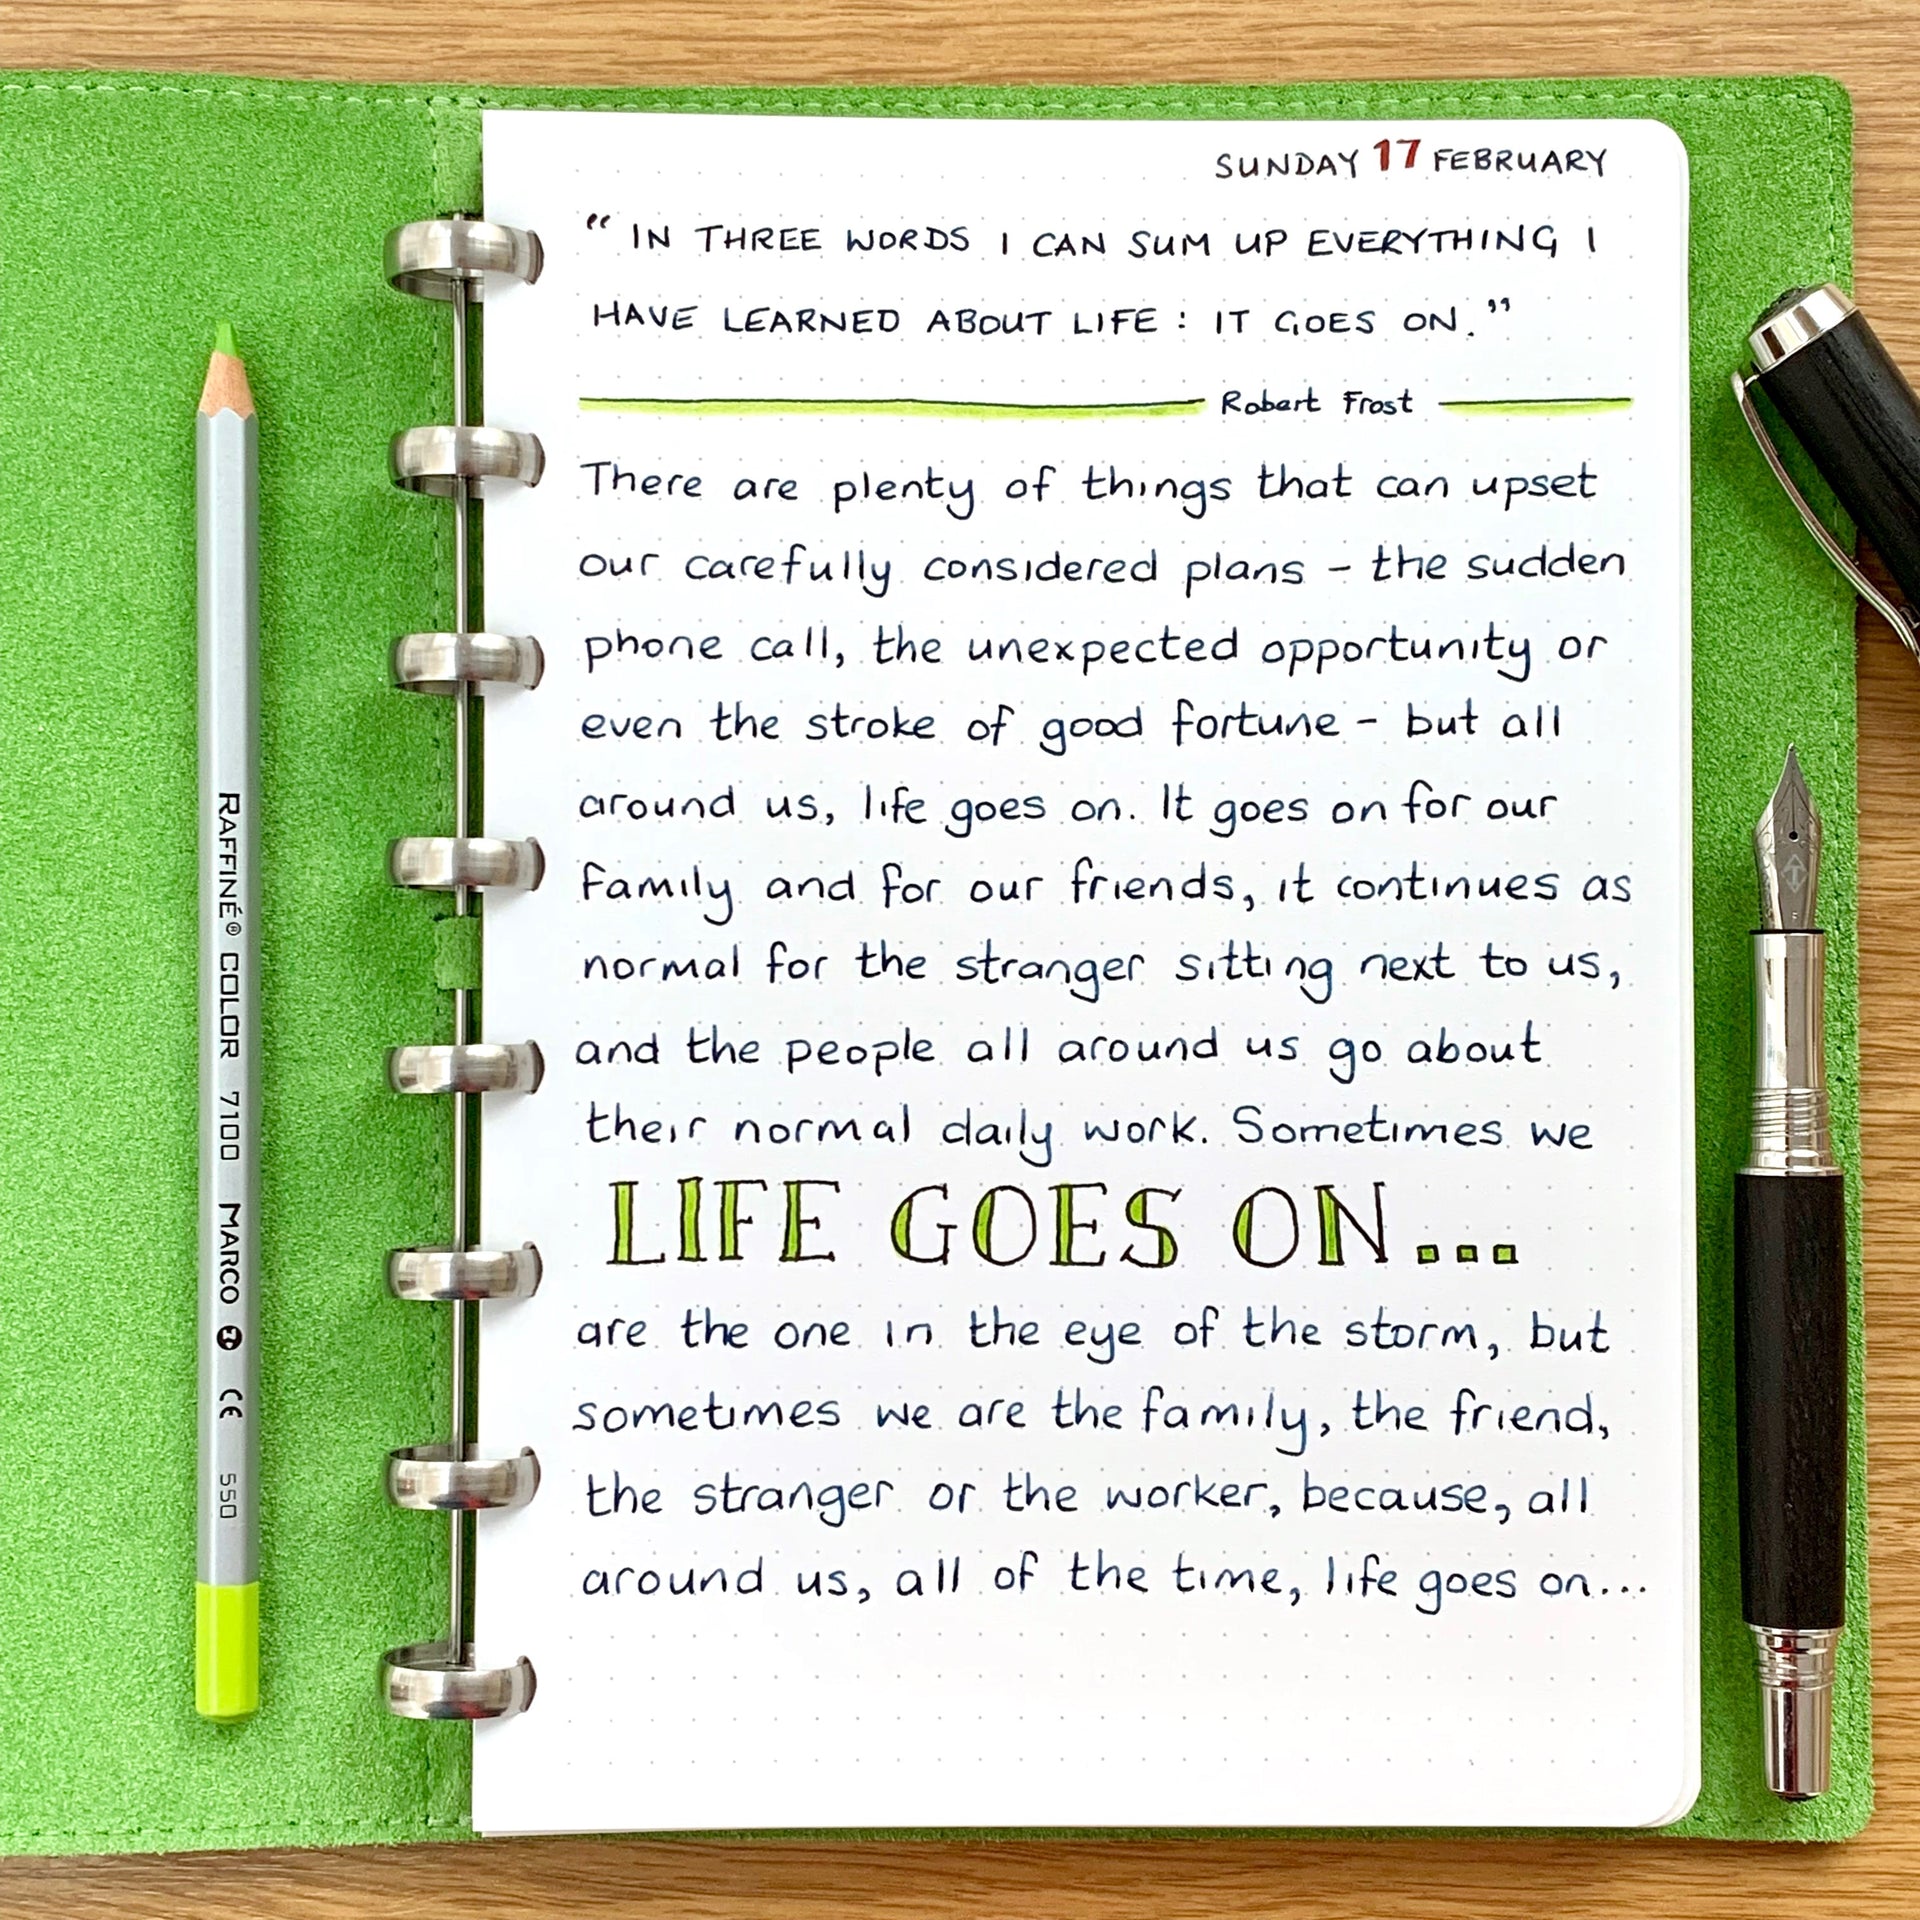 SUNDAY 17 FEBRUARY
“ IN THREE WORDS I CAN SUM UP EVERYTHING I
HAVE LEARNED ABOUT LIFE : IT GOES ON.”
Robert Frost
There are plenty of things that can upset
our carefully considered plans – the sudden
phone call, the unexpected opportunity or
even the stroke of good fortune – but all
around us, life goes on. It goes on for our
family and for our friends, it continues as
normal for the stranger sitting next to us,
and the people all around us go about
their normal daily work. Sometimes we
LIFE GOES ON...
are the one in the eye of the storm, but
sometimes we are the family, the friend,
the stranger or the worker, because, all
around us, all of the time, life goes on...
RAFFINÉ® COLOR 7100 MARCO CE 550